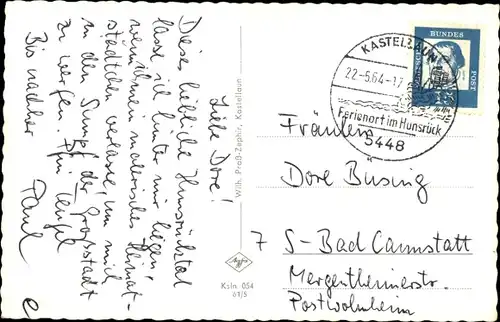 Liebe Dore!
Diese liebliche Hunsrückstadt
lasse ich hinter mir liegen,
wenn ich mein malerisches Heimat-
städtchen verlasse, um mich
in den Sumpf der Grossstadt
zu werfen. Pfui Teufel
Bis nachher
Paul
Wilh. Praß-Zephir, Kastellaun
Agfa
Ksln. 054
61/5
DEUTSCHE
BUNDES
POST
KASTELLAUN
22-5.64-17
Ferienort im Hunsrück
5448
Fräulein
Dore Büsing
7 S-Bad Cannstatt
Mergentheimerstr.
Postwohnheim